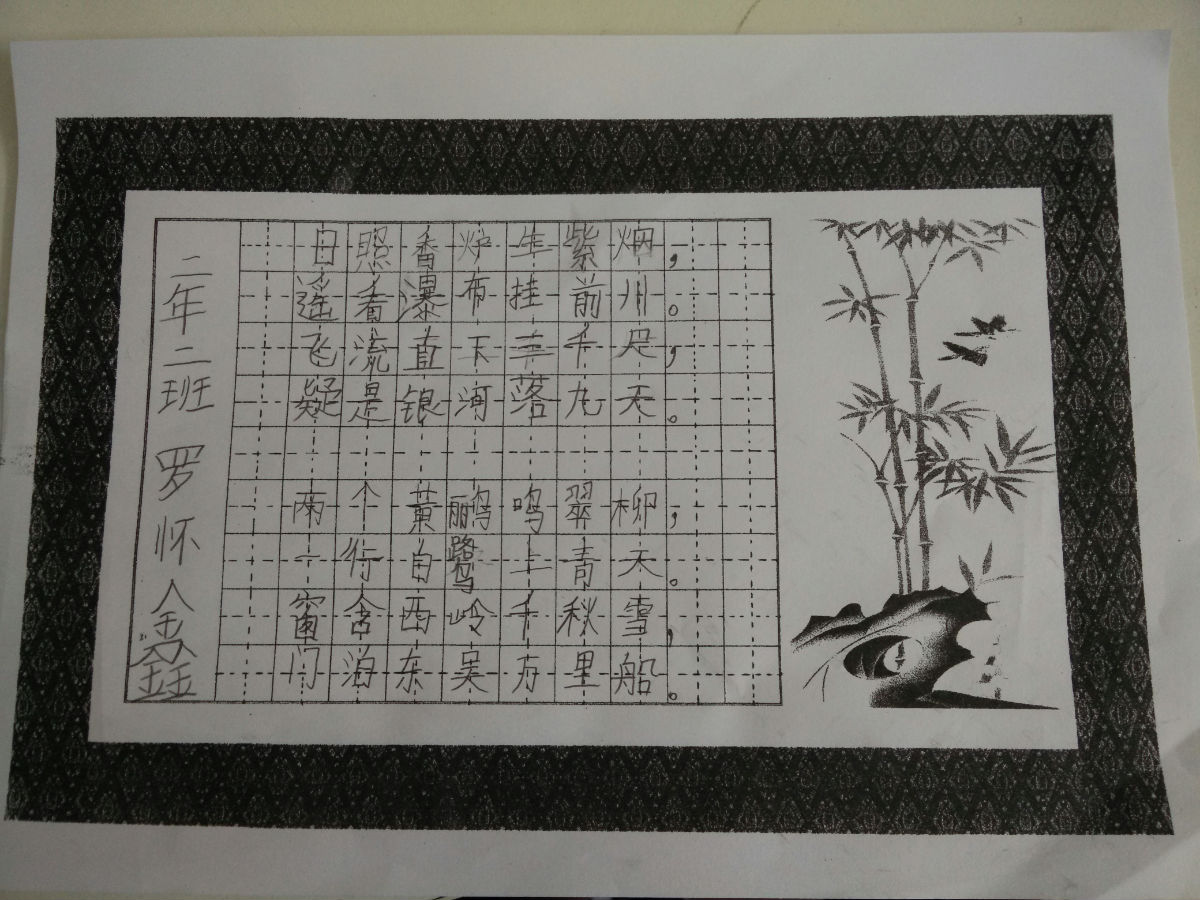 二年二班 罗怀鑫
日照香炉生紫烟，
遥看瀑布挂前川。
飞流直下三千尺，
疑是银河落九天。
两个黄鹂鸣翠柳，
一行白鹭上青天。
窗含西岭千秋雪，
门海东吴万里船。